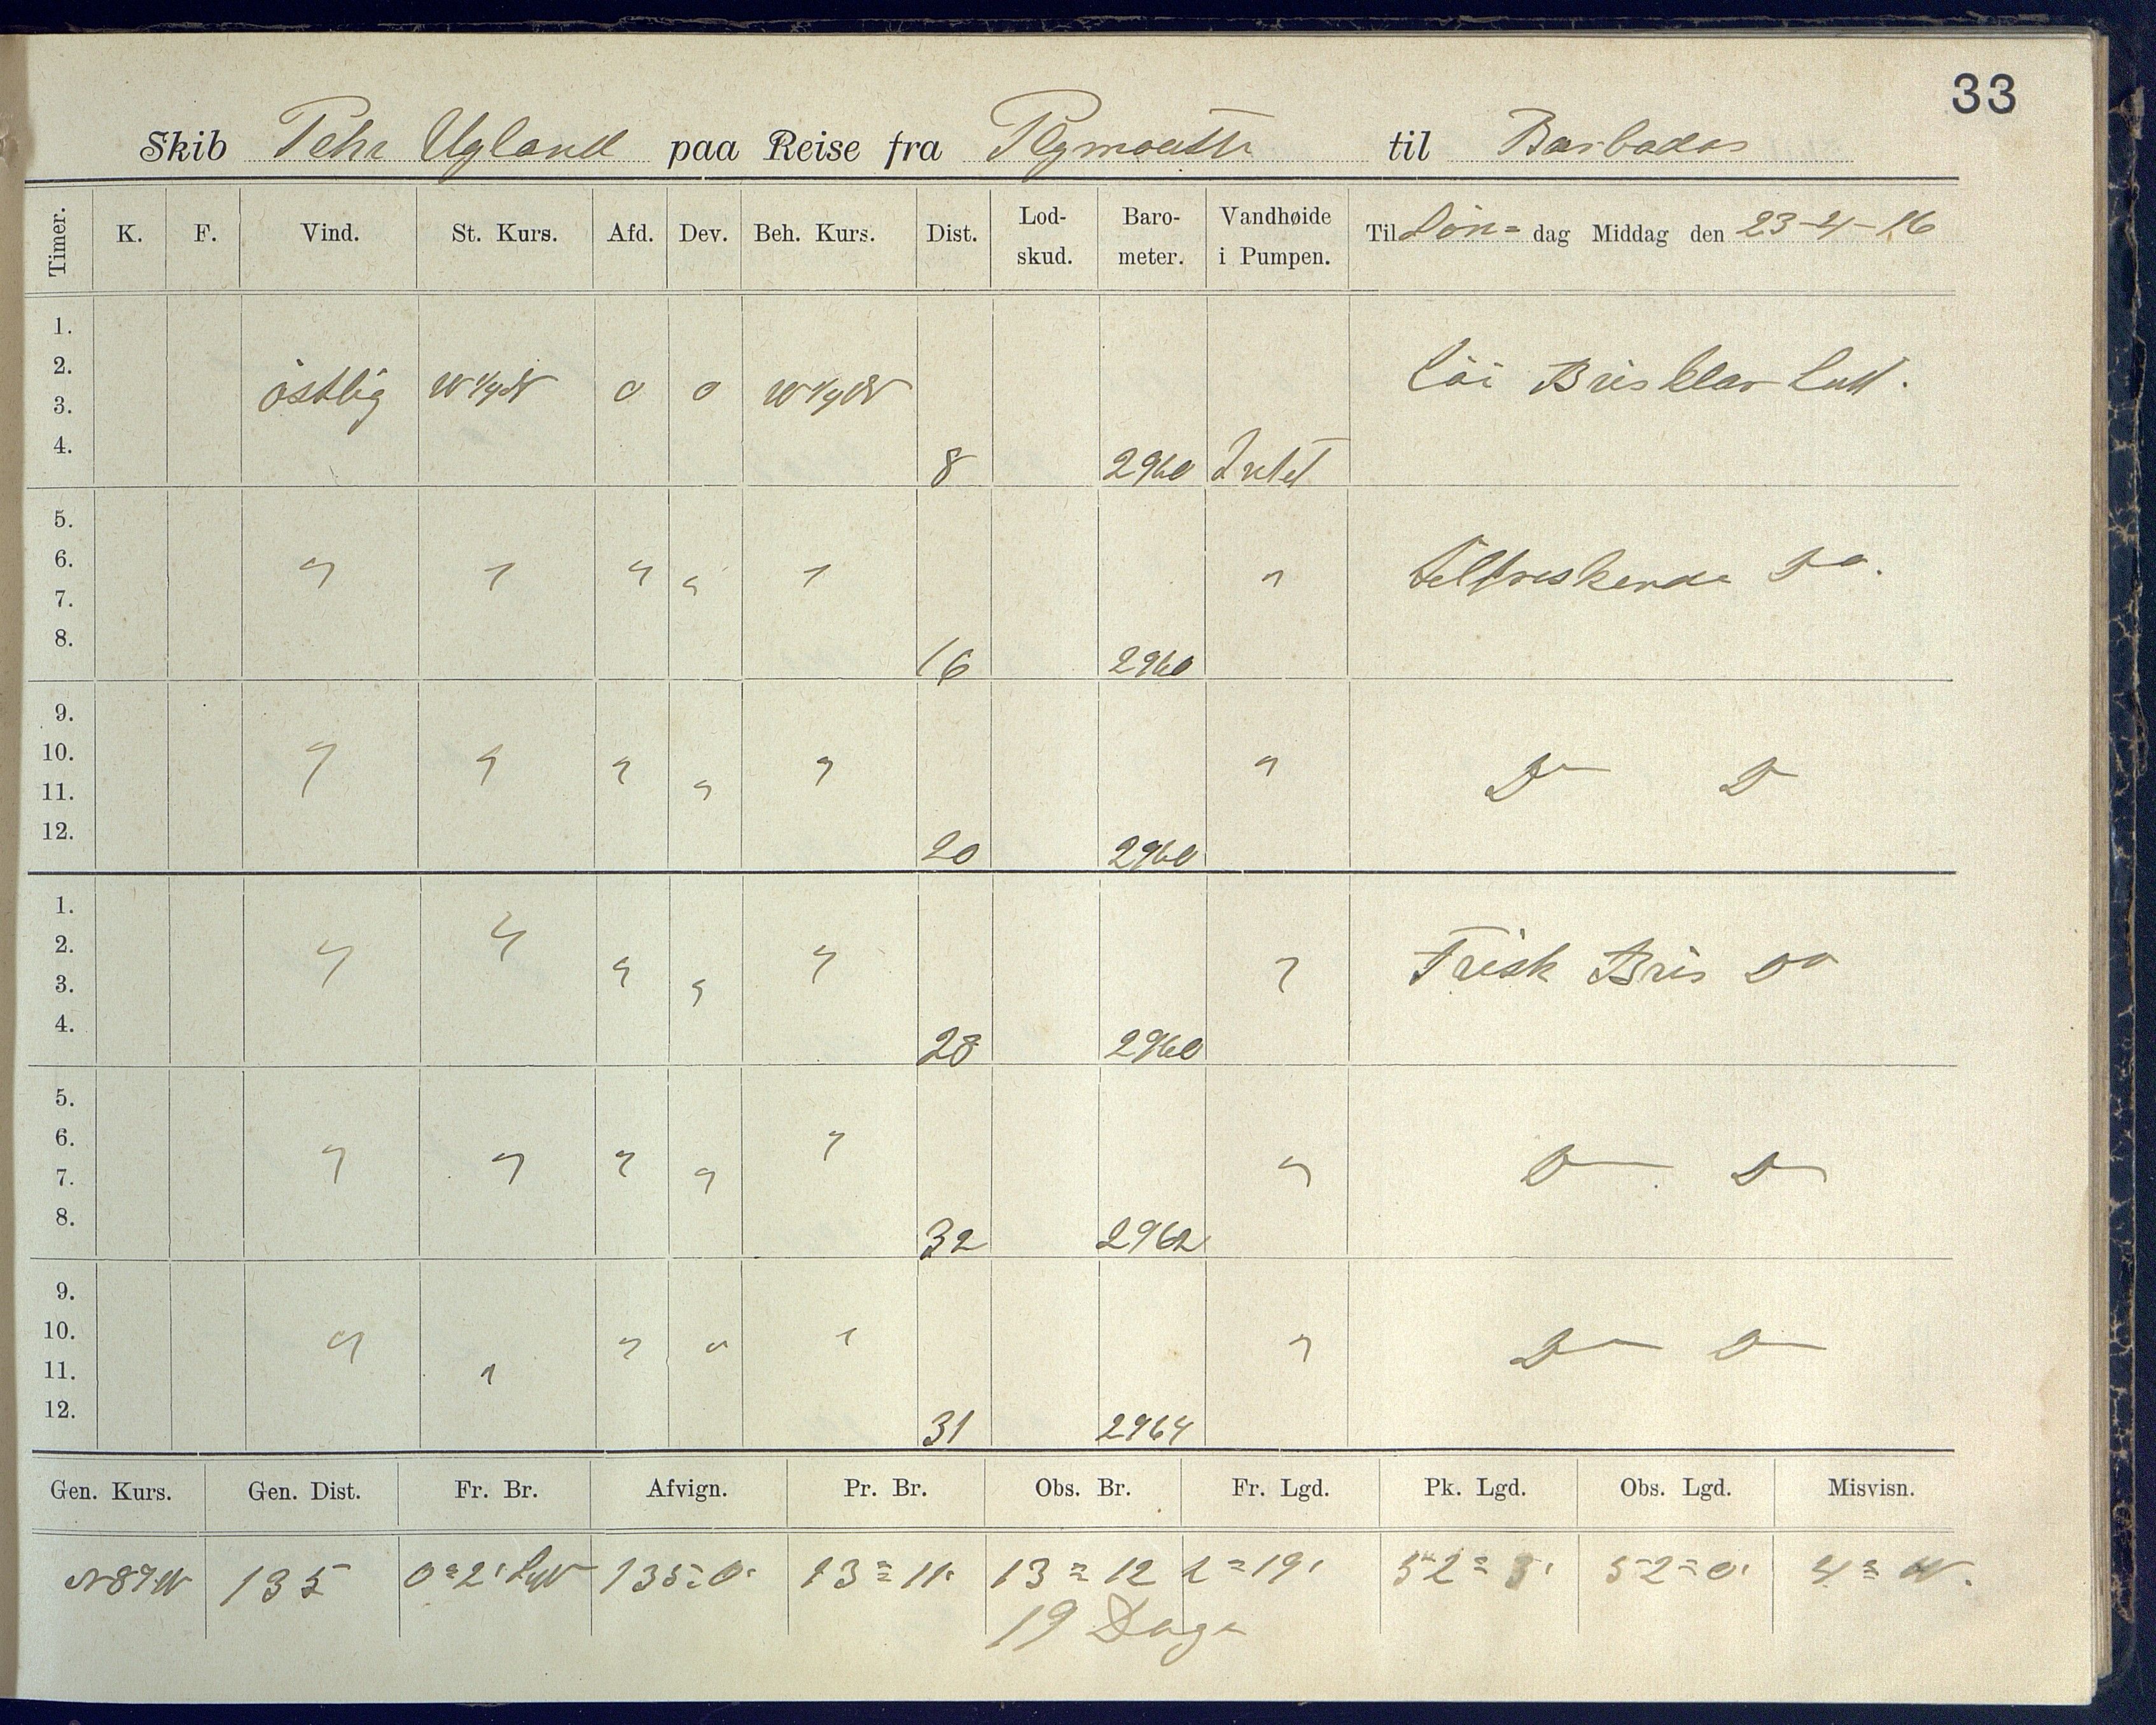 33
Skib Pehr Ugland paa Reise fra Plymouth til Barbados
Timer. K. F. Vind. St. Kurs. Afd. Dev. Beh. Kurs. Dist. Lod-skud. Baro-meter. Vandhøide i Pumpen. Til Søn= dag Middag den 23-4-16
1.
2. Løi Bris klar Luft.
3. östlig W 1/4 N 0 0 W 1/4 N
4. 8 2960 Intet
5.
6. " " " " " " Tilfriskende Do.
7.
8. 16 2960
9.
10. " " " " " " Do Do
11.
12. 20 2960
1.
2. " " " " " " Frisk Bris Do
3.
4. 28 2960
5.
6. " " " " " " Do Do
7.
8. 32 2962
9.
10. " " " " " " Do Do
11.
12. 31 2964
Gen. Kurs. Gen. Dist. Fr. Br. Afvign. Pr. Br. Obs. Br. Fr. Lgd. Pk. Lgd. Obs. Lgd. Misvisn.
N87W 135 0=2' 135=0' 13=11' 13=12 2=19' 52=3' 52=0' 4= W.
19 Dage